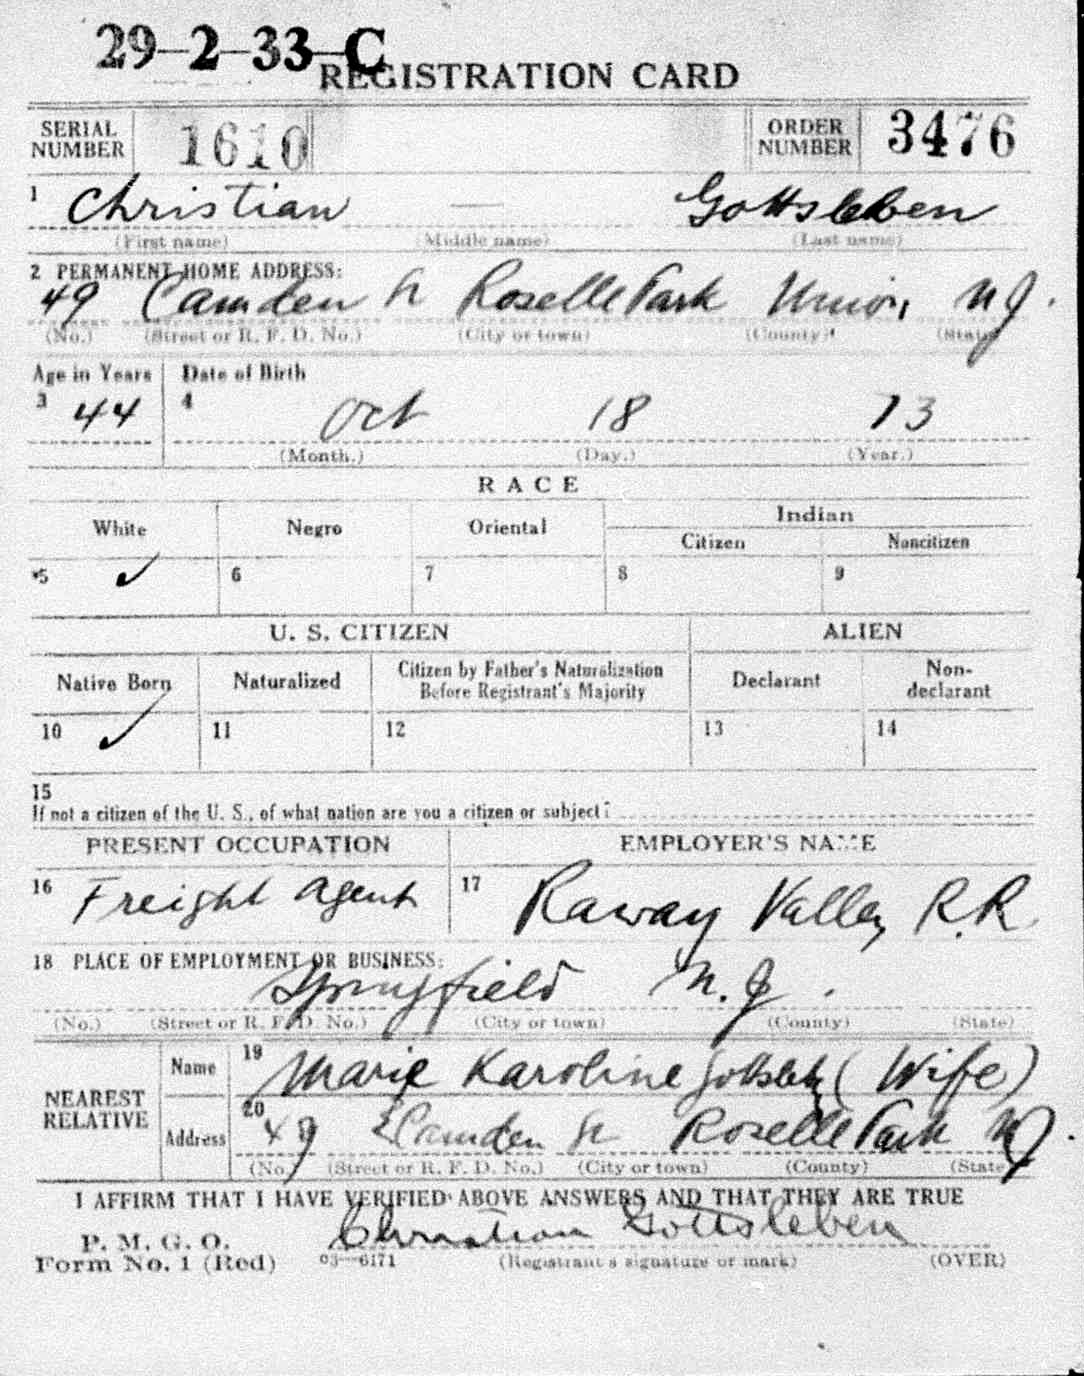 29-2-33-C
REGISTRATION CARD
SERIAL NUMBER 1610 ORDER NUMBER 3476
1 Christian — Gottsleben
(First name) (Middle name) (Last name)
2 PERMANENT HOME ADDRESS:
49 Camden St Roselle Park Union N J.
(No.) (Street or R. F. D. No.) (City or town) (County) (State)
Age in Years Date of Birth
3 44 4 Oct 18 73
(Month.) (Day.) (Year.)
RACE
White Negro Oriental Indian
Citizen Noncitizen
5 ✓ 6 7 8 9
U. S. CITIZEN ALIEN
Native Born Naturalized Citizen by Father's Naturalization Before Registrant's Majority Declarant Non-declarant
10 ✓ 11 12 13 14
15
If not a citizen of the U. S., of what nation are you a citizen or subject?
PRESENT OCCUPATION EMPLOYER'S NAME
16 Freight agent 17 Raway Valley R.R.
18 PLACE OF EMPLOYMENT OR BUSINESS:
Springfield N.J.
(No.) (Street or R. F. D. No.) (City or town) (County) (State)
NEAREST RELATIVE
Name 19 Marie Karoline (Wife)
Address 20 49 Camden St Roselle Park NJ.
(No.) (Street or R. F. D. No.) (City or town) (County) (State)
I AFFIRM THAT I HAVE VERIFIED ABOVE ANSWERS AND THAT THEY ARE TRUE
P. M. G. O. Christian Gottsleben
Form No. 1 (Red) 03—6171 (Registrant's signature or mark) (OVER)